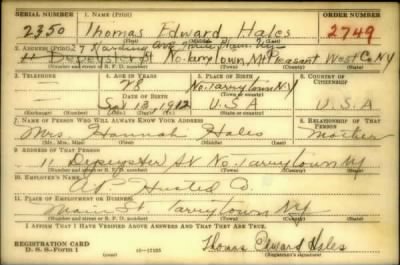 SERIAL NUMBER 1. NAME (Print) ORDER NUMBER
2350 Thomas Edward Hales 2749
(First) (Middle) (Last)
2. ADDRESS (Print) 27 Ave White Plains Ny
11 Depeyster St No. Tarrytown, Mt Pleasant West Co NY
(Number and street or R. F. D. number) (Town) (County) (State)
3. TELEPHONE 4. AGE IN YEARS 5. PLACE OF BIRTH 6. COUNTRY OF CITIZENSHIP
28 No. Tarrytown NY
DATE OF BIRTH
Sept 13, 1912 U.S.A U.S.A.
(Exchange) (Number) (Mo.) (Day) (Yr.) (State or country)
7. NAME OF PERSON WHO WILL ALWAYS KNOW YOUR ADDRESS 8. RELATIONSHIP OF THAT PERSON
Mrs Hannah Hales Mother
(Mr., Mrs., Miss) (First) (Middle) (Last)
9. ADDRESS OF THAT PERSON
11 Depeyster St No. Tarrytown Ny
(Number and street or R. F. D. number) (Town) (County) (State)
10. EMPLOYER'S NAME
Husted Co.
11. PLACE OF EMPLOYMENT OR BUSINESS
Main St Tarrytown NY
(Number and street or R. F. D. number) (Town) (County) (State)
I AFFIRM THAT I HAVE VERIFIED ABOVE ANSWERS AND THAT THEY ARE TRUE.
REGISTRATION CARD
D. S. S. Form 1 16—17105 Thomas Edward Hales
(Registrant's signature)